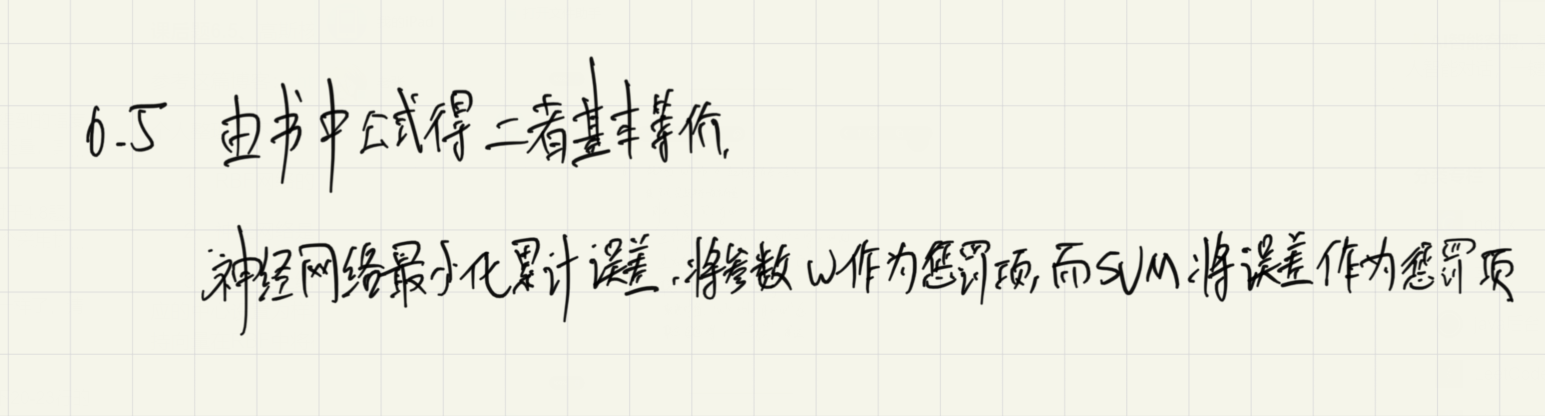 6.5 由书中公式得二者基本等价,
神经网络最小化累计误差,将参数w作为惩罚项,而SVM将误差作为惩罚项